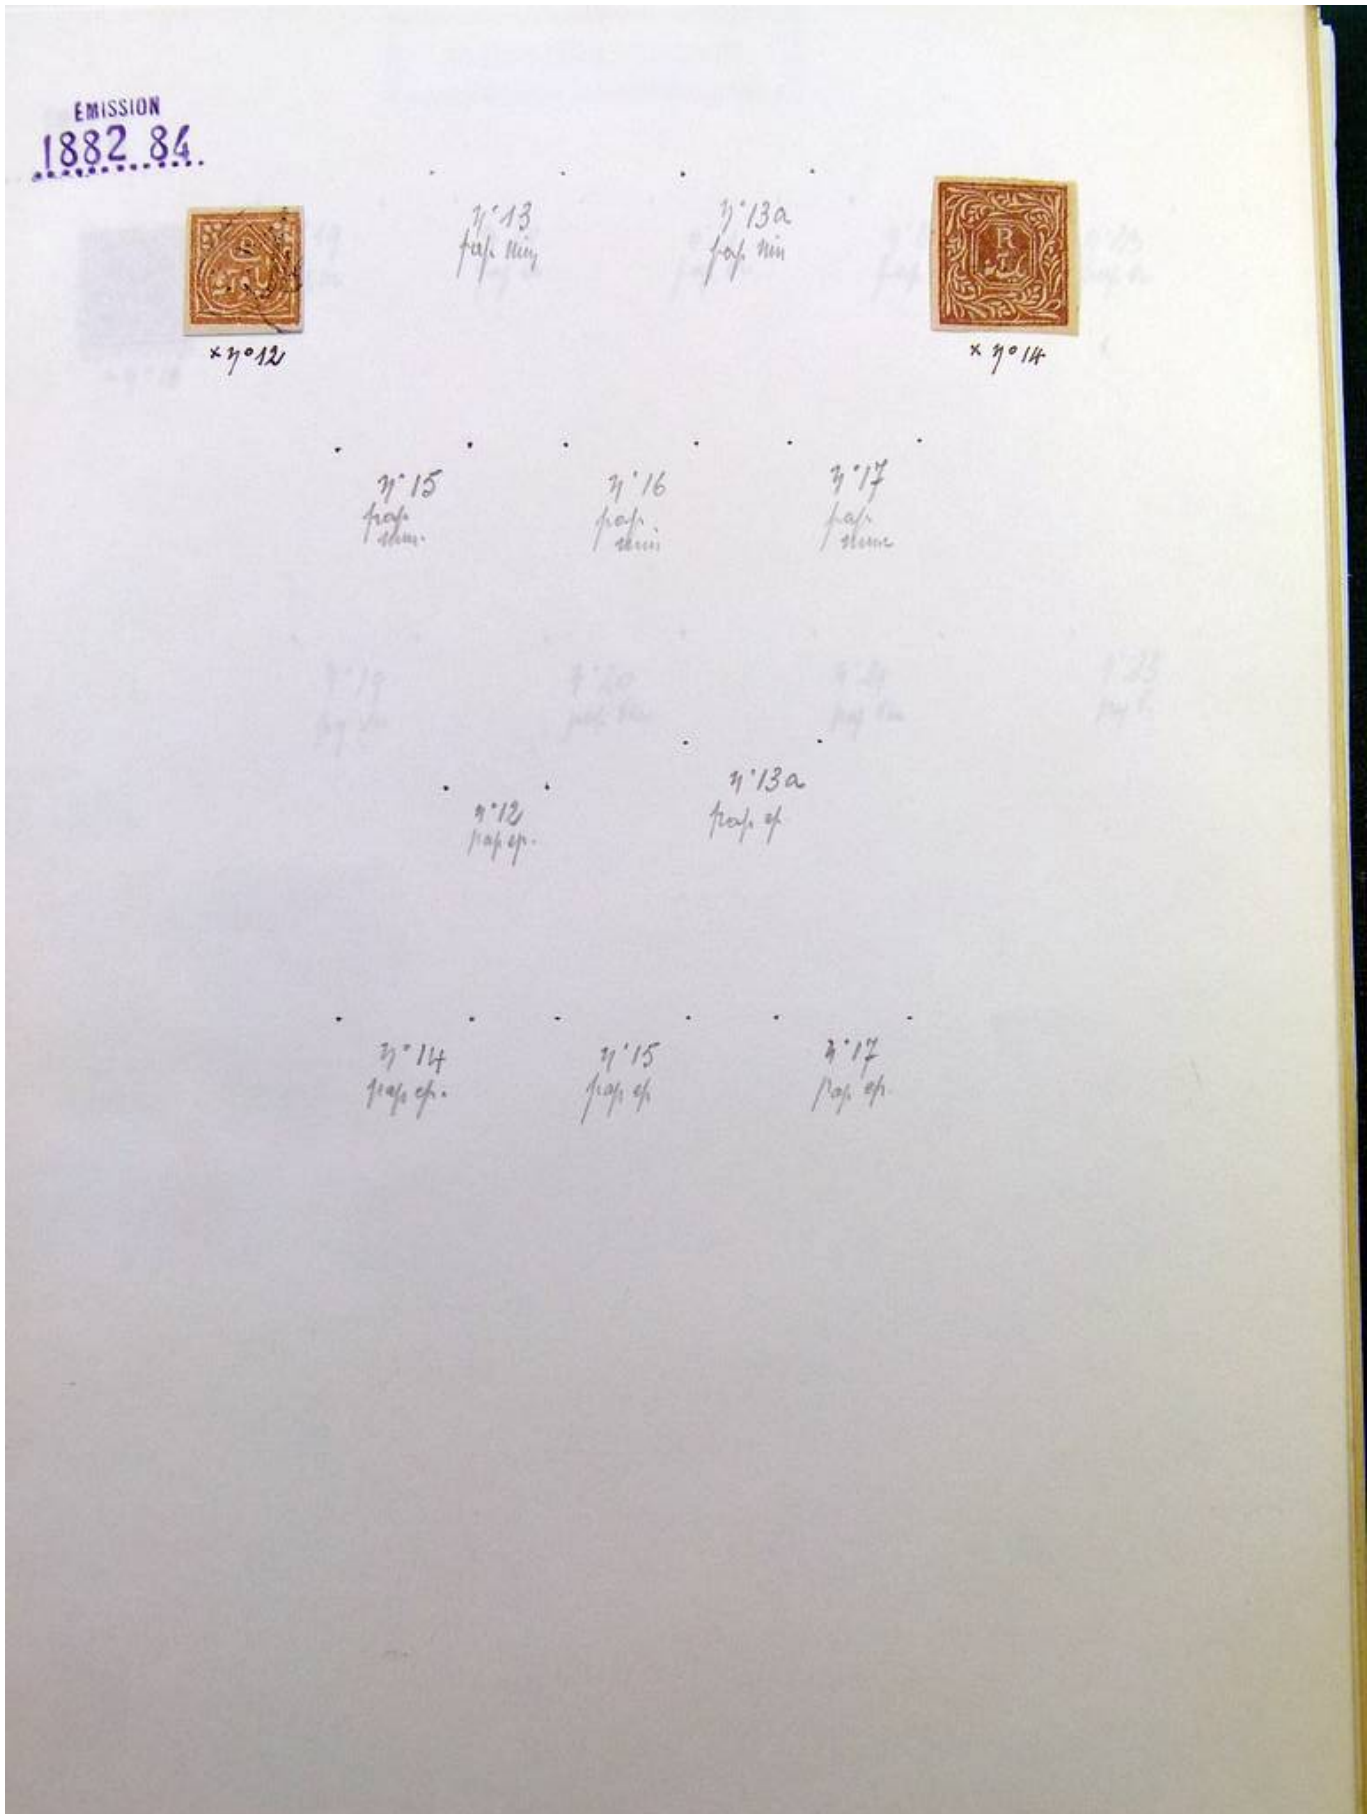 EMISSION
1882.84.
n°13
pap. min
n°13a
pap. min
R
x n°12
x n°14
n°15
pap.
min.
n°16
pap.
min
n°17
pap.
mince
n°12
pap ep.
n°13a
pap. ep
n°14
pap. ep.
n°15
pap. ep
n°17
pap. ep.